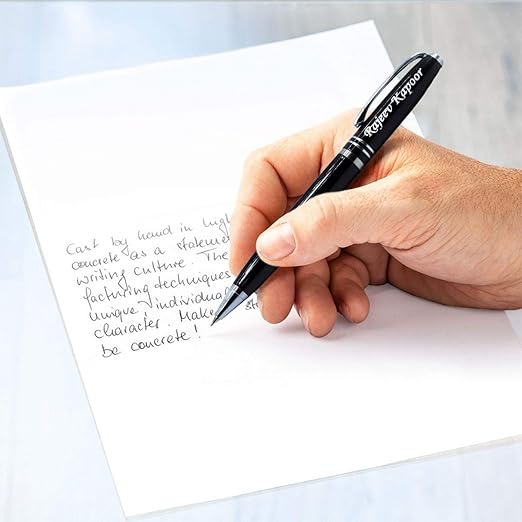 Rajeev Kapoor
Cast by hand in high
concrete as a stateme
writing culture. The
facturing techniques
unique, individual
character. Make
be concrete!